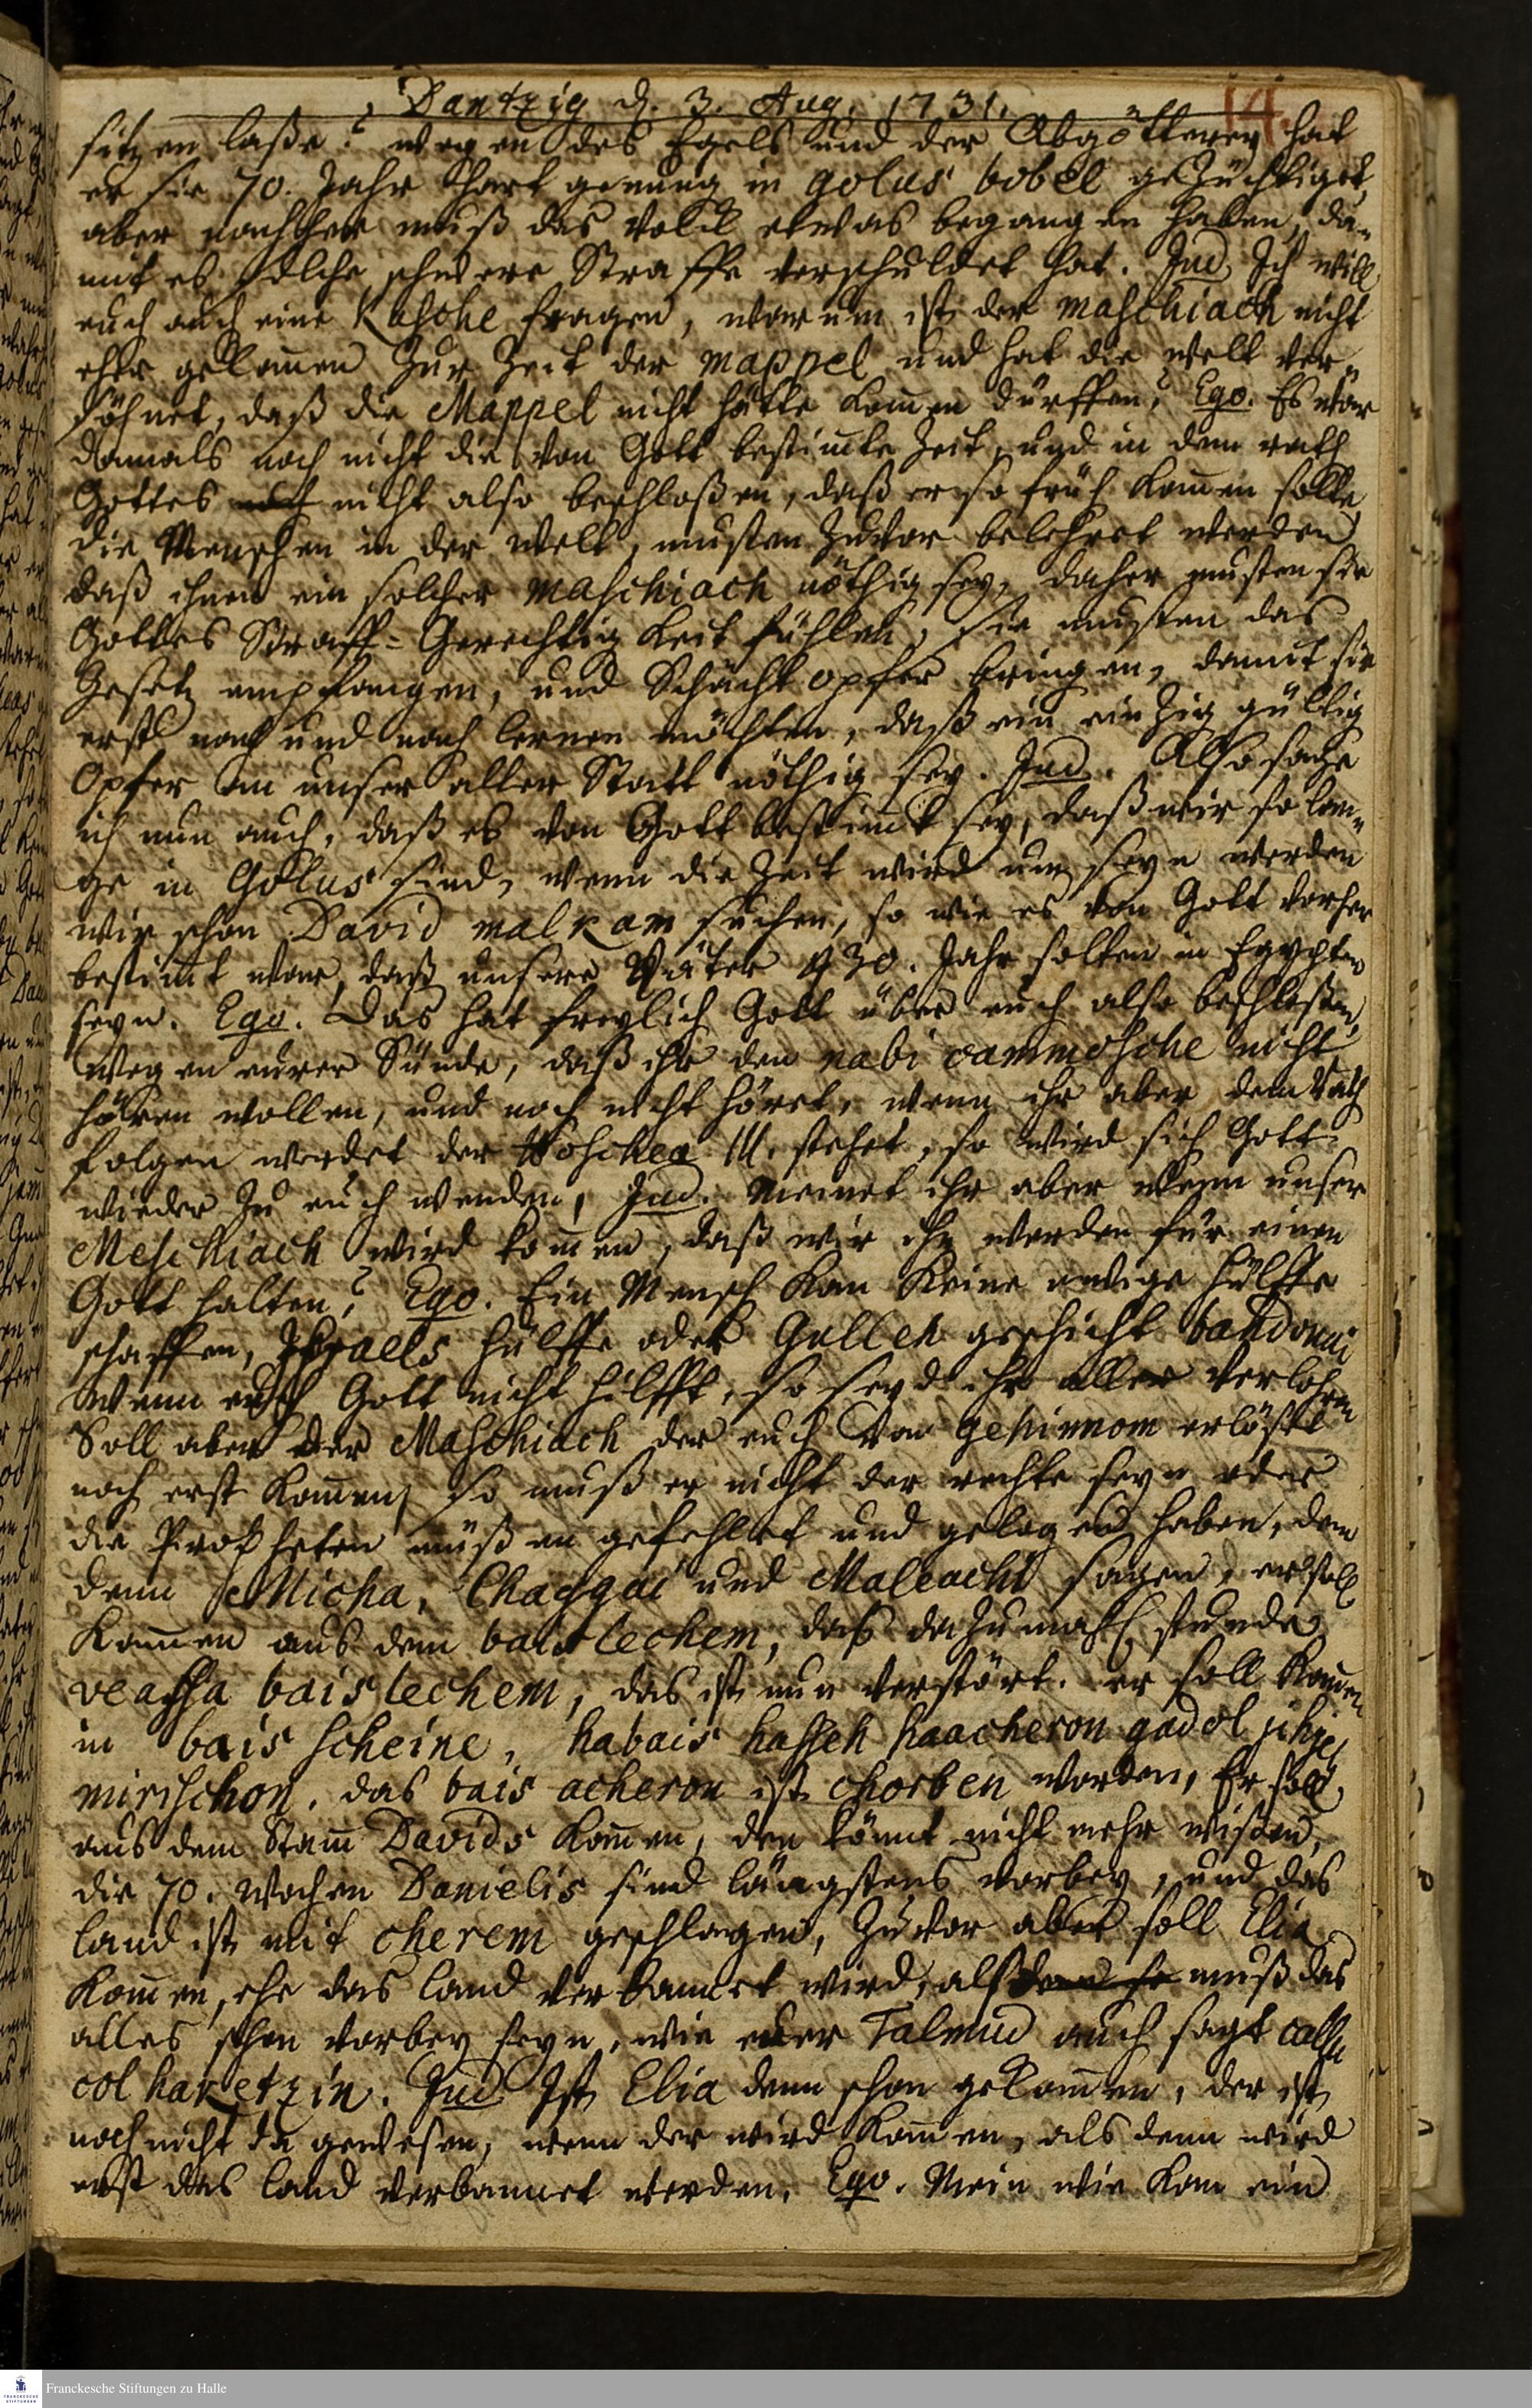 Dantzig d. 3. Aug. 1731.
141
sitzen laße? wegen des Egels und der Abgötterey hat
er sie 70. Jahr hart genung in golus bobel gezüchtiget,
aber nachher muß das Volck etwas begangen haben, da-
mit es solche schwere Straffe verschuldet hat. Jud. Ich will
euch auch eine Kasche fragen, warum ist der maschiach nicht
eher gekom̄en zur Zeit der mappel und hat die welt ver-
söhnet, daß die Mappel nicht hätte kom̄en dürffen? Ego. Es war
damals noch nicht die von Gott bestim̄te Zeit, und in dem rath
Gottes nicht also beschloßen, daß er so früh kom̄en solte,
die Menschen in der welt, musten zuvor belehret werden
daß ihnen ein solcher maschiach nöthig sey, daher musten sie
Gottes Straff-Gerechtigkeit fühlen, sie musten das
Gesetz empfangen, und Schächt opfer bringen, damit sie
erst nach und nach lernen möchten, daß ein einzig gültig
Opfer an unser aller Statt nöthig sey. Jud. Also sage
ich nun auch, daß es von Gott bestim̄t sey, daß wir so lan-
ge in Golus sind, wenn die Zeit wird um seyn werden
wir schon David malkam suchen, so wie es von Gott vorher
bestim̄t war, daß unsere Väter 430. Jahr solten in Egypten
seyn. Ego. Das hat freylich Gott über euch also beschloßen,
wegen eurer Sünde, daß ihr den nabi cammosche nicht
hören wollen, und noch nicht höret, wenn ihr aber dem Rath
folgen werdet der Hoschea III. stehet, so wird sich Gott
wieder zu euch wenden, Jud. Meinet ihr aber wenn unser
Meschiach wird kom̄en, daß wir ihn werden für einen
Gott halten? Ego. Ein Mensch kan keine ewige Hülffe
schaffen, Israels Hülffe oder Gulleh geschicht badonai
wenn euch Gott nicht hilfft, so seyd ihr alle verlohren
Soll aber der Maschiach der euch von gehinnom erlöset
noch erst kom̄en, so muß er nicht der rechte seyn oder
die Propheten müßen gefehlet und gelogen haben, denn
denn Micha, Chaggai und Maleachi sagen, er soll
kom̄en aus dem bais lechem, das dazumahl stunde
veassa bais lechem, das ist nun verstört. er soll kom̄en
in bais scheine, habais hasseh haacheron gadol jihje
mirischon, das bais acheron ist chorben worden, Er soll
aus dem Stam̄ Davids kom̄en, den könnt nicht mehr wißen,
die 70. Wochen Danielis sind längstens vorbey, und das
land ist mit cherem geschlagen, zuvor aber soll Elia
kom̄en, ehe das land verbannet wird, also muß das
alles schon vorbey seyn, wie euer Talmud auch sagt callu
col haketzin. Jud. Ist Elia denn schon gekom̄en, der ist
noch nicht da gewesen, wenn der wird kom̄en, als denn wird
erst das land verbannet werden. Ego. Mein wie kan ein
Franckesche Stiftungen zu Halle